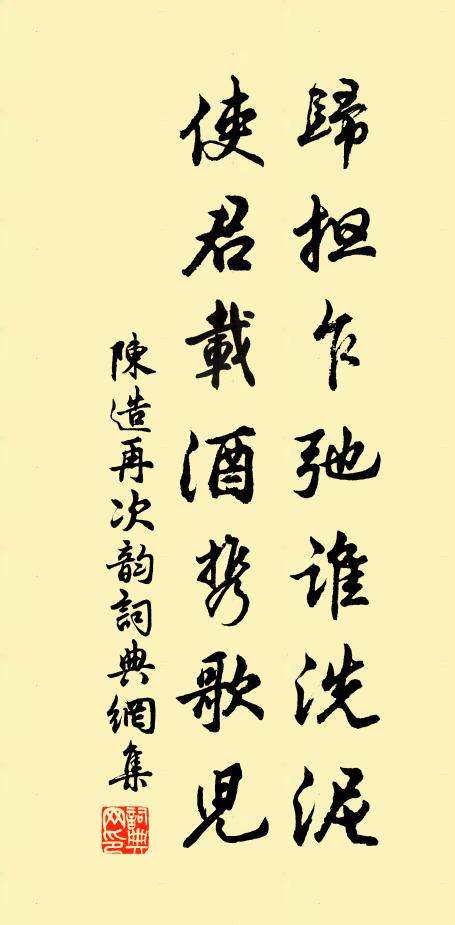 歸担乍弛谁洗泥
使君載酒携歌児
陳造再次韵詞典網集
詞典網印